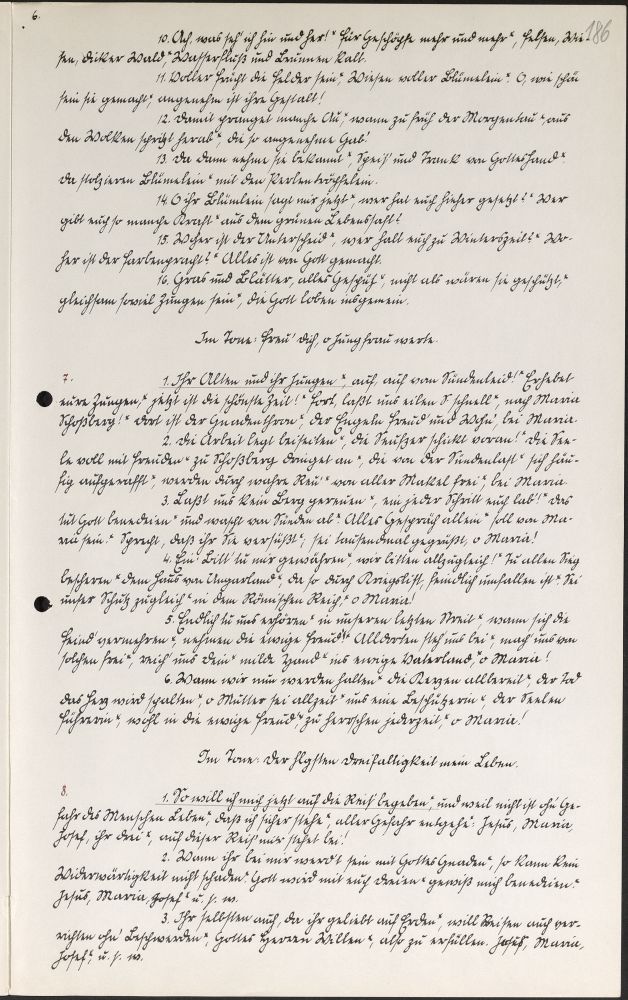 6.
186
10. Ach, was seh' ich hin und her!" für Geschöpfe mehr und mehr", Felsen, Wie-
sen, dicker Wald," Wasserfluß und Brunnen kalt.
11. Voller Frucht die Felder sein," Wiesen voller Blümelein". O, wie schön
sein sie gemacht," angenehm ist ihre Gestalt!
12. Damit pranget manche Au", wann zu früh der Morgentau", aus
den Wolken spritzt herab", die so angenehme Gab'.
13. Da dann nehme sie bekannt", Speis' und Trank von Gottes Hand".
da stolzieren Blümelein" mit den Perlentröpfelein.
14. O ihr Blümlein sagt mir jetzt", wer hat euch hieher gesetzt?" Wer
gibt euch so manche Kraft" aus dem grünen Lebenssaft?
15. Woher ist der Unterscheid", wer halt euch zu Winterszeit?" Wo-
her ist der Farbenpracht?" Alles ist von Gott gemacht.
16. Gras und Blätter, alles Gesprüß", nicht als wären sie geschützt,"
gleichsam soviel Zungen sein", die Gott loben insgemein.
Im Tone: Freu' dich, o Jungfrau werte.
7.
1. Ihr Alten und ihr Jungen", auf, auf vom Sündenleid!" Erhebet
eure Zungen," jetzt ist die schönste Zeit!" Fort, laßt uns eilen schnell", nach Maria
Schoßberg!" dort ist der Gnadenthron", der Engeln Freud' und Wohn', bei Maria.
2. Die Arbeit legt beiseiten", die Seufzer schickt voran!" Die See-
le voll mit Freuden" zu Schoßberg dringet an", die von der Sündenlast" sich häu-
fig aufgerafft", werden durch wahre Reu'" von aller Makel frei", bei Maria.
3. Laßt uns kein Berg gereuen", ein jeder Schritt euch lab'!" Das
tut Gott benedeien" und wascht von Sünden ab". Alles Gespräch allein" soll von Ma-
ria sein." Sprecht, daß ihr Sie versüßt", sei tausendmal gegrüßt, o Maria!
4. Ein' Bitt' tu mir gewähren", wir bitten allzugleich!" Tu allen Sieg
bescheren" dem Haus von Ungarland", da so durch Kriegslist, feindlich umfallen ist". Sei
unser Schutz zugleich" in dem Römischen Reich," o Maria!
5. Endlich tu uns erhören" in unseren letzten Streit", wann sich die
Feind vermehren", nehmen die ewige Freud'!" Alldorten steh uns bei", mach' uns von
solchen frei", reich' uns dein" milde Hand" ins ewige Vaterland," o Maria!
6. Wann wir nun werden halten" die Kerzen allbereit", der Tod
das Herz wird spalten", o Mutter sei allzeit" uns eine Beschützerin", der Seelen
Führerin", wohl in die ewige Freud'," zu herrschen jederzeit," o Maria!
Im Tone: Der hlgsten Dreifaltigkeit mein Leben.
8.
1. So will ich mich jetzt auf die Reis' begeben", und weil nicht ist ohn' Ge-
fahr des Menschen Leben", daß ich sicher stehe", aller Gefahr entgehe": Jesus, Maria,
Josef, ihr drei", auf dieser Reis' mir stehet bei!
2. Wann ihr bei mir werd't sein mit Gottes Gnaden", so kann kein
Widerwärtigkeit nicht schaden." Gott wird mit euch dreien" gewiß mich benedeien."
Jesus, Maria, Josef" u. s. w.
3. Ihr selbsten auch, da ihr gelebt auf Erden", will Reisen auch ver-
richten ohn' Beschwerden", Gottes Herren Willen", also zu erfüllen. Jesus, Maria,
Josef", u. s. w.